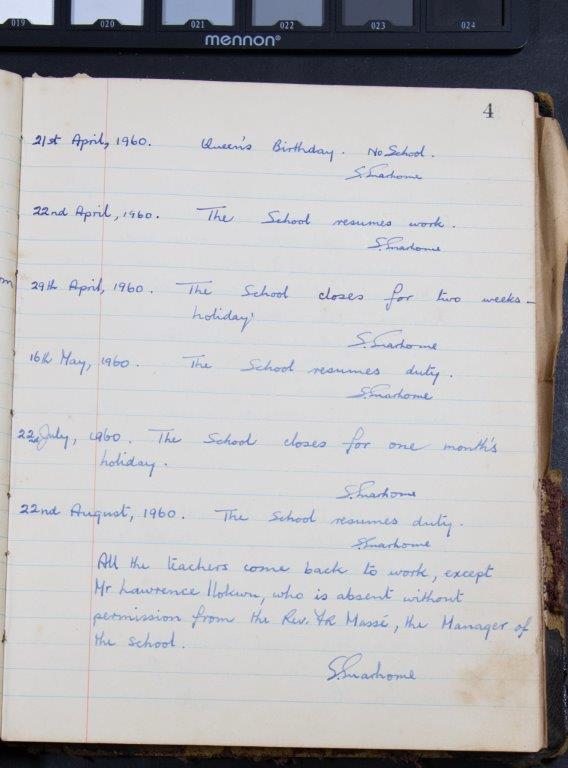 019 020 021 022 023 024
mennon®
4
21st April, 1960. Queen's Birthday. No School.
22nd April, 1960. The School resumes work.
29th April, 1960. The School closes for two weeks-
holiday.
16th May, 1960. The School resumes duty.
22nd July, 1960. The School closes for one month's
holiday.
22nd August, 1960. The School resumes duty.
All the teachers come back to work, except
Mr Lawrence Ilokwu, who is absent without
permission from the Rev. FR Massé, the Manager of
the school.